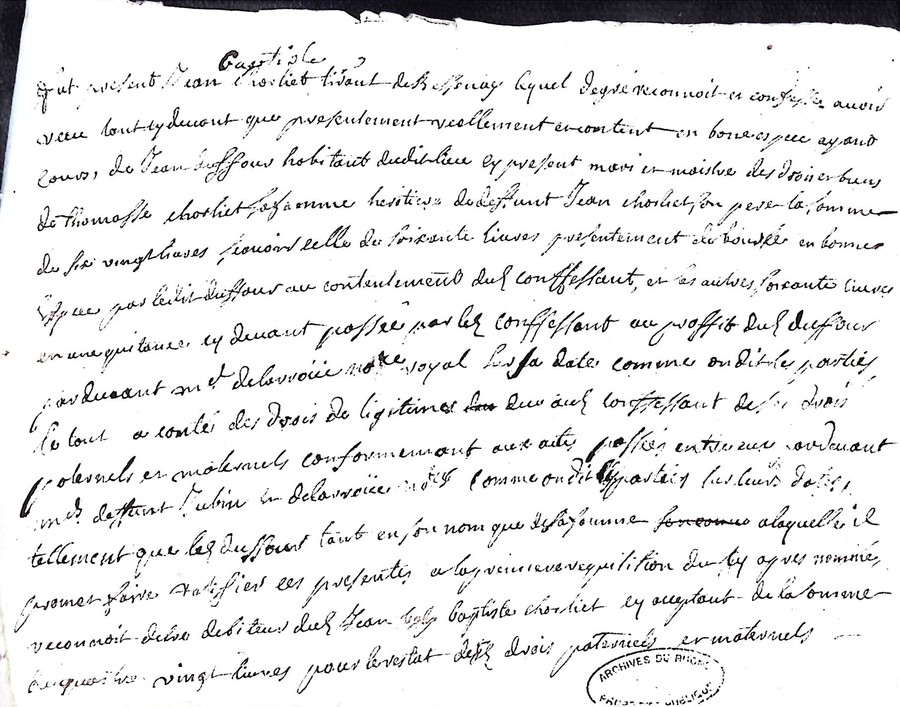 Baptiste
fut present Jean chorliet tisant de Ressenay lequel de gré reconnoit et confesse avoir
receu tant cy devant que presentement reellement et content en bone espece ayant
cours, de Jean duffour habitant dudit lieu cy present mari et maistre des drois et biens
de thomasse chorliet sa famme heritiere de deffunt Jean chorliet son pere la somme
de six vingt livres scavoir celle de soixante livres presentement deboursée en bonnes
espece par ledit duffour au contentement dud confessant, et les autres soixante livres
en une quitance cy devant passée par led confessant au proffit dud duffour
pardevant me delarroiie nore royal sur sa date comme ont dit les parties
le tout a conte des drois de ligitime deu aud confessant de ses drois
paternels et maternels conformement aux actes passées entre eux pardevant
mes deffunt Jubin et delarroiie nores comme ont dit les parties sur leurs dates,
tellement que led duffour tant en son nom que de sa famme a laquelle il
promet faire ratiffier ces presentes a la premiere requisition du cy apres nommé,
reconnoit estre debiteur dud Jean baptiste chorliet cy aceptant de la somme
de quatre vingt livres pour le restat desd drois paternels et maternels
ARCHIVES DU RHONE